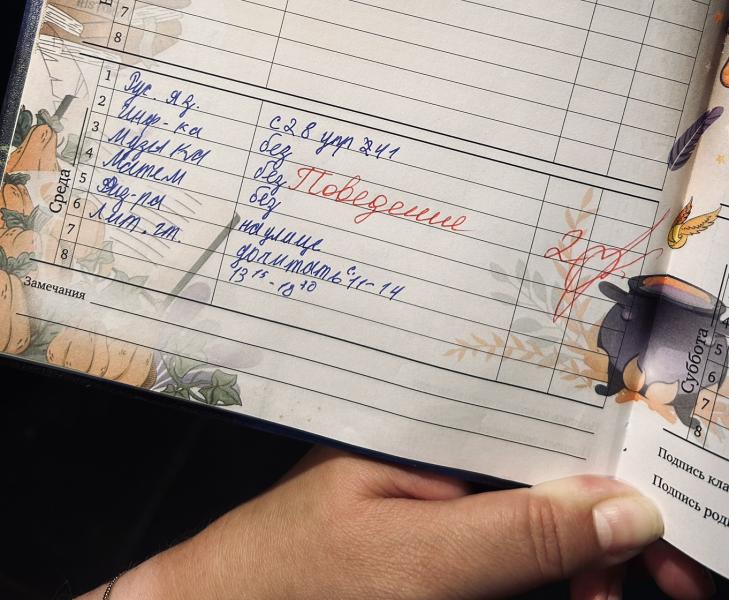 7
8
Среда
1 Рус. яз. с 28 упр 241
2 Инф-ка без
3 музыка без Поведение
4 Матем без
5 Физ-ра на улице
6 Лит. чт. дочитать с 11-14
7 13 15 - 18 30
8
2
Замечания
4
5
6
7
8
Суббота
Подпись кла
Подпись роди